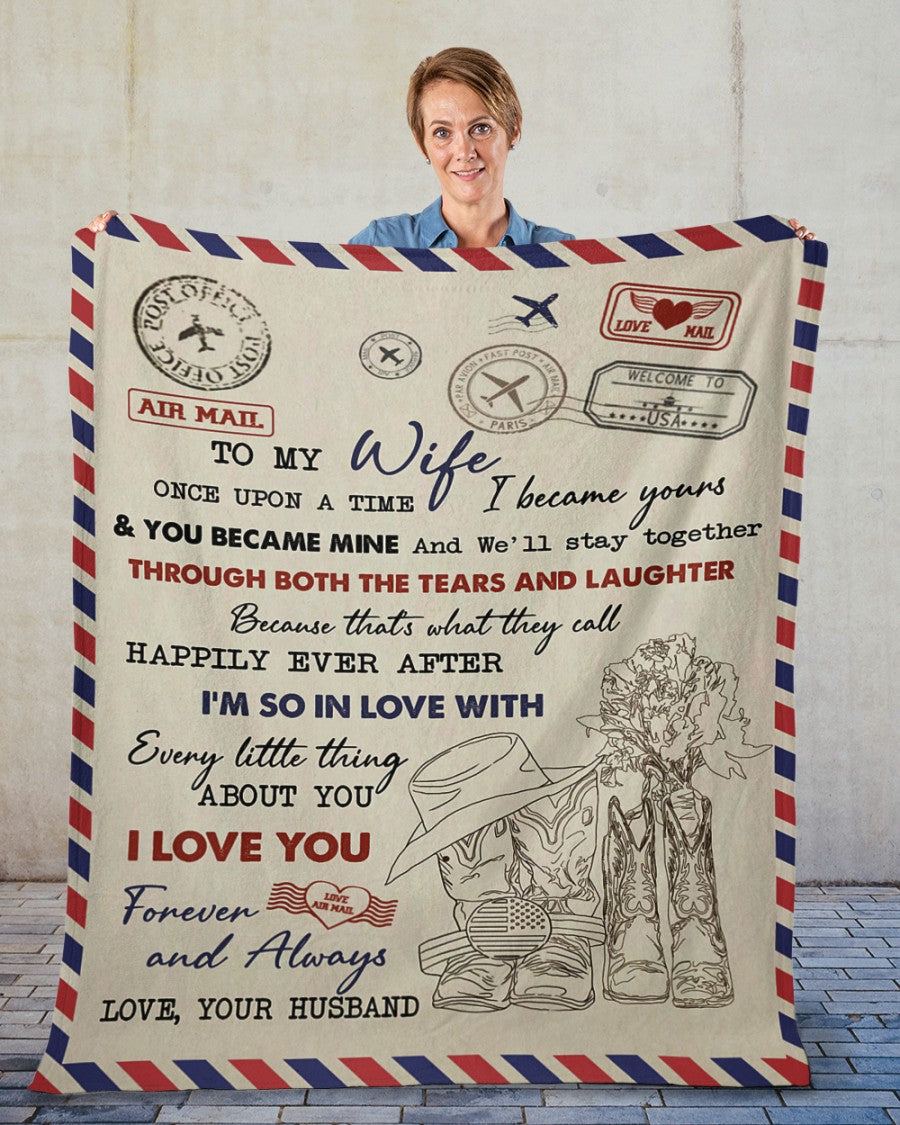 POST OFFICE POST OFFICE
LOVE MAIL
PAR AVION • FAST POST • AIR MAIL
PARIS
WELCOME TO
USA
AIR MAIL
TO MY Wife
ONCE UPON A TIME I became yours
& YOU BECAME MINE And We'll stay together
THROUGH BOTH THE TEARS AND LAUGHTER
Because that's what they call
HAPPILY EVER AFTER
I'M SO IN LOVE WITH
Every little thing
ABOUT YOU
I LOVE YOU
Forever
LOVE
AIR MAIL
and Always
LOVE, YOUR HUSBAND